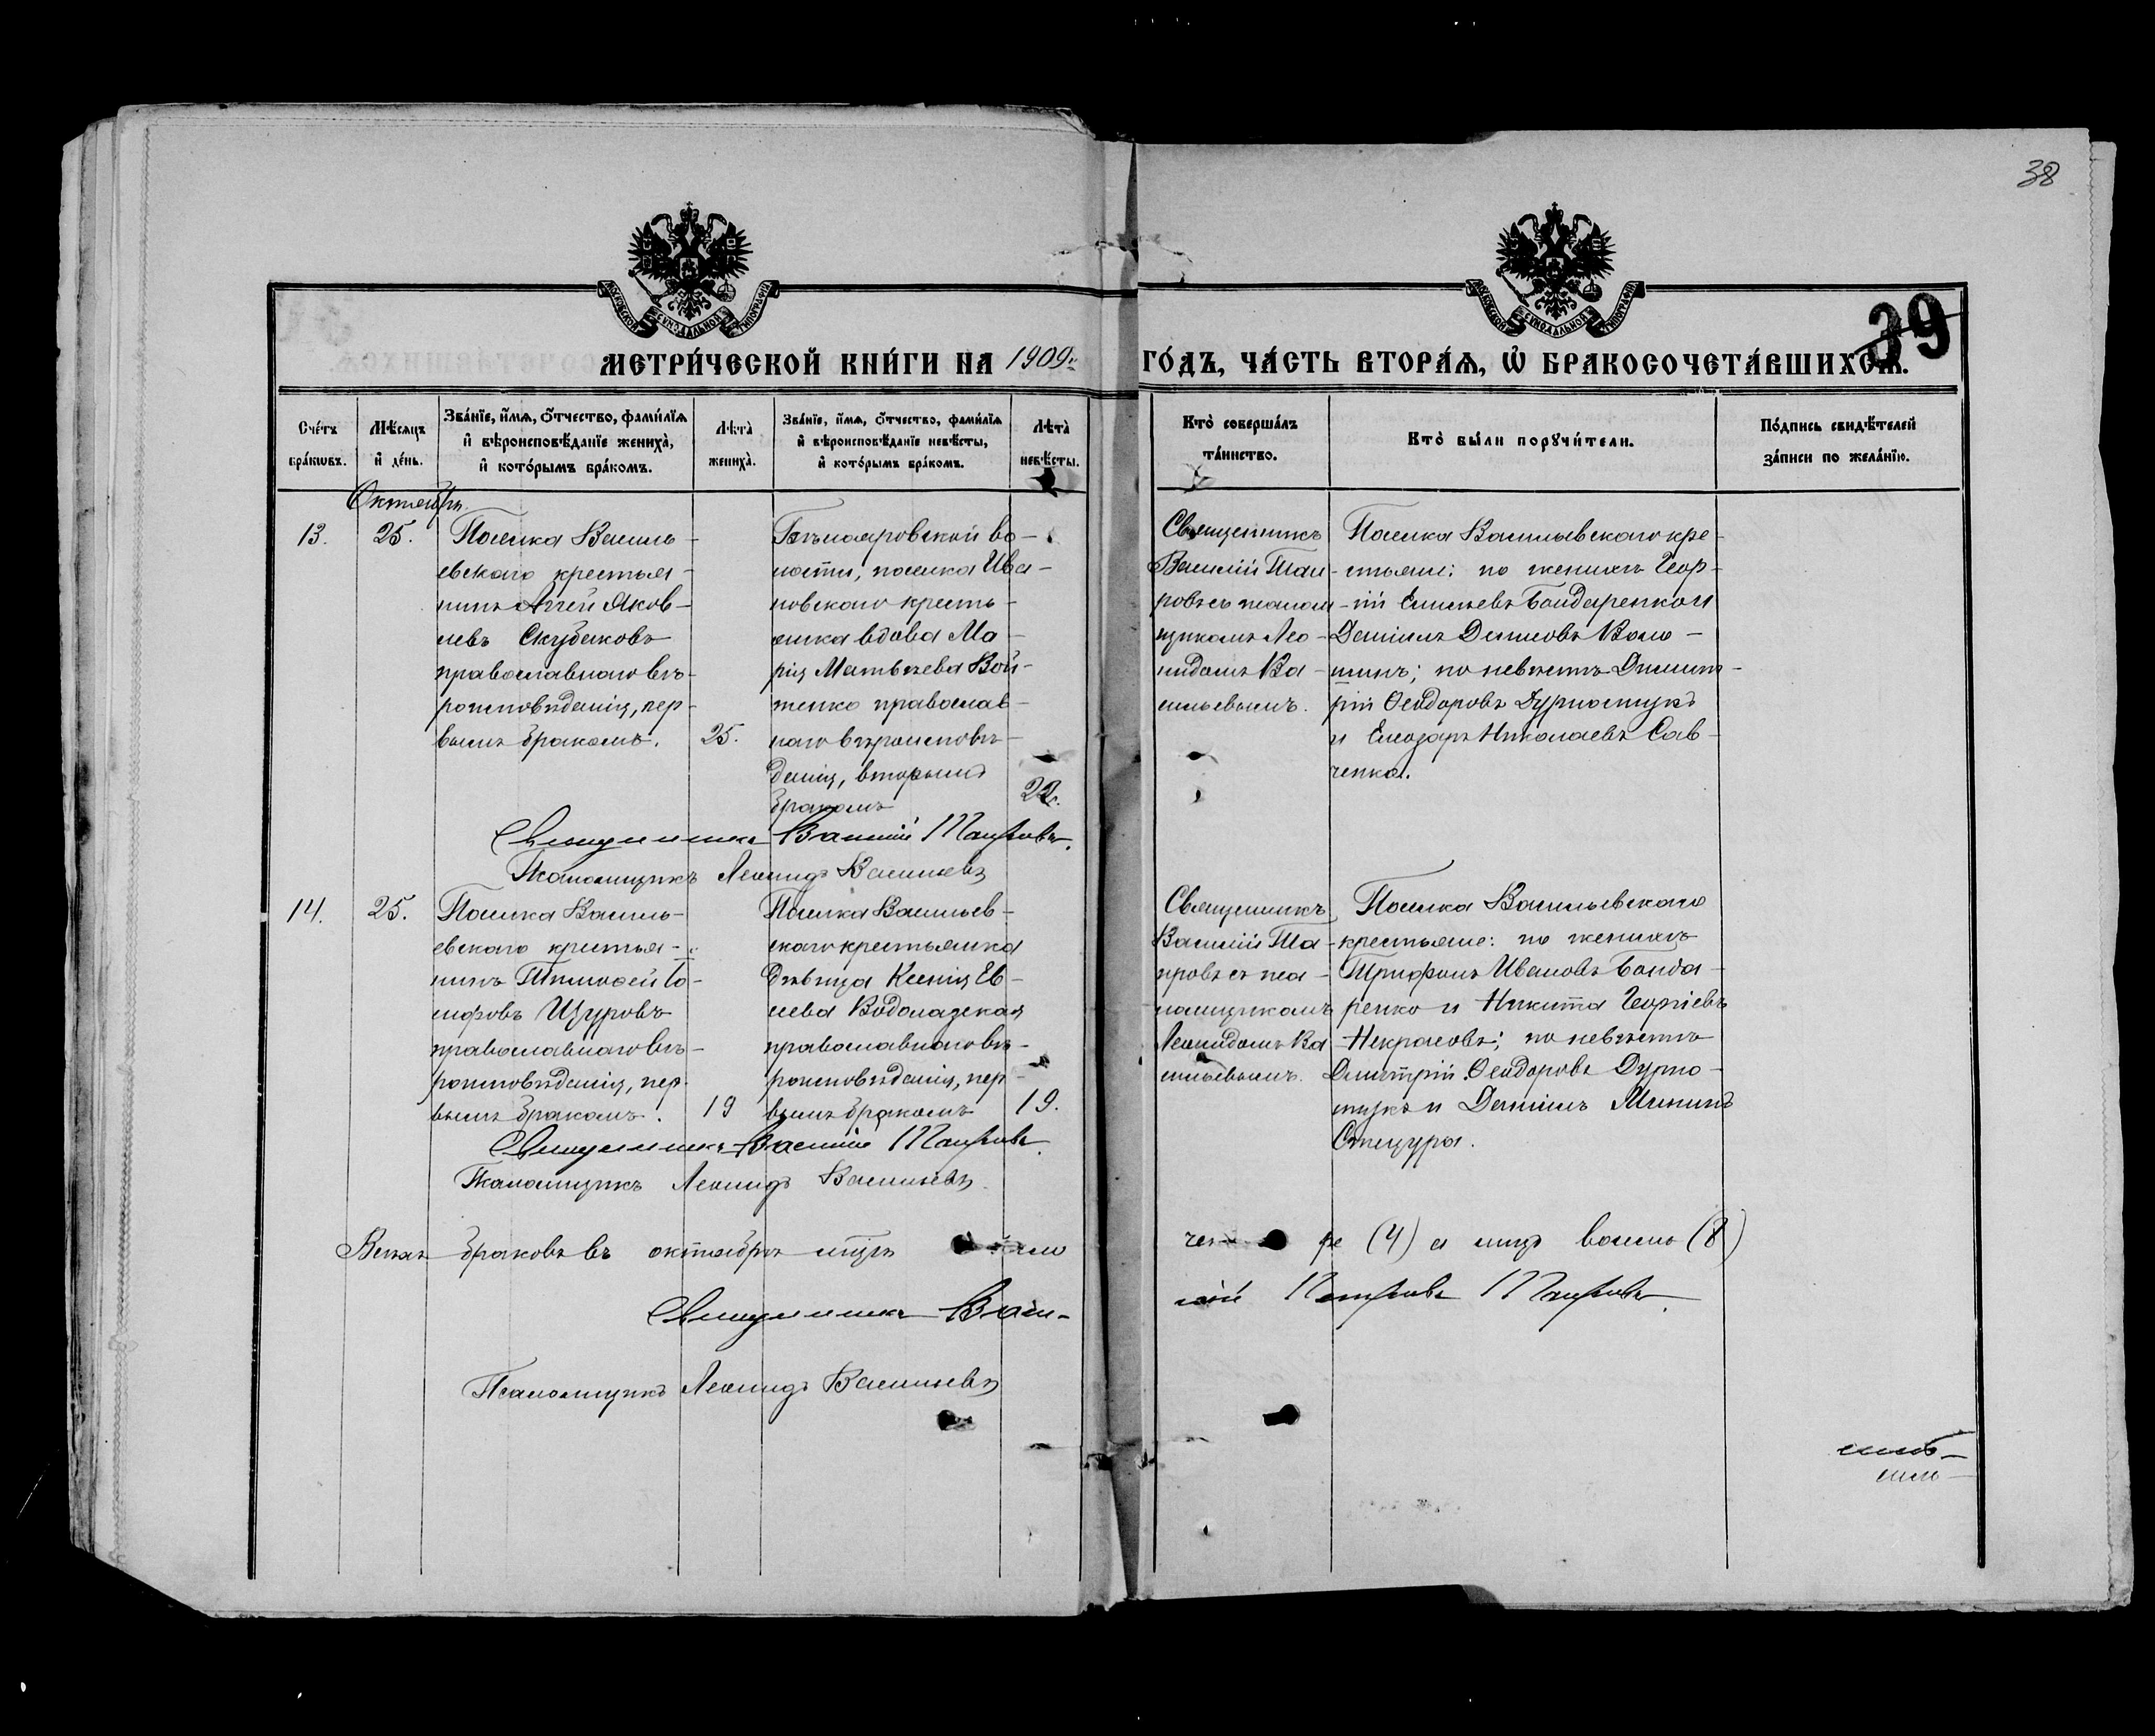 38
39
МЕТРИ́ЧЕСКОЙ КНИ́ГИ НА 1909 г. ГО́ДЪ, ЧА́СТЬ ВТОРА́Ѧ, Ѽ БРАКОСОЧЕТА́ВШИХСѦ.
Сче́тъ бра́кѡвъ.
Мѣ́сяцъ и҆ де́нь.
Зва́нїе, и҆́мѧ, ѻ҆́тчество, фами́лїѧ
и҆ вѣроисповѣ́данїе жениха̀,
и҆ кото́рымъ бра́комъ.
Лѣта̀ жениха̀.
Зва́нїе, и҆́мѧ, ѻ҆́тчество, фами́лїѧ
и҆ вѣроисповѣ́данїе невѣ́сты,
и҆ кото́рымъ бра́комъ.
Лѣта̀ невѣ́сты.
Кто̀ соверша́лъ та́инство.
Кто̀ бы́ли порꙋчи́тели.
По́дпись свидѣ́телей за́писи по жела́нїю.
Октябрь.
13.
25.
Поселка Василь-
евскаго крестья-
нинъ Аггей Яков-
левъ Скубаковъ
православнаго вѣ-
роисповѣданія, пер-
вымъ бракомъ.
25.
во-
лости, поселка Ива-
новскаго кресть-
янка вдова Ма-
рія Матвѣева Вой-
тенко православ-
наго вѣроисповѣ-
данія, вторымъ
бракомъ
22.
Священникъ
Василій Таи-
ровъ съ псаломщ-
щикомъ Лео-
нидомъ Ва-
сильевымъ.
Поселка Васильевскаго кре-
стьяне: по женихѣ Геор-
гій Бондаренко и
Даніилъ Воло-
шинъ; по невѣстѣ Димит-
рій Ѳеодоровъ Дурностукъ
и Елеазаръ Николаевъ Сав-
ченко.
Священникъ Василій Таировъ.
Псаломщикъ Леонидъ Васильевъ
14.
25.
Поселка Василь-
евскаго крестья-
нинъ Тимоѳей Іо-
сифовъ Щуровъ
православнаго вѣ-
роисповѣданія, пер-
вымъ бракомъ.
19
Поселка Васильев-
скаго крестьянка
дѣвица Ксенія Ев-
сева Водолазская
православнаго вѣ-
роисповѣданія, пер-
вымъ бракомъ
19.
Священникъ
Василій Та-
ировъ съ пса-
ломщикомъ
Леонидомъ Ва-
сильевымъ.
Поселка Васильевскаго
крестьяне: по женихѣ
Трифонъ Ивановъ Бонда-
ренко и Никита Георгіевъ
Некрасовъ; по невѣстѣ
Димитрій Ѳеодоровъ Дурно-
стукъ и Даніилъ Мининъ
Стецура.
Священникъ Василій Таировъ.
Псаломщикъ Леонидъ Васильевъ
Всѣхъ браковъ въ октябрѣ мцѣ (4) а лицъ восемь (8)
Священникъ Васи-
лій Петровъ Таировъ.
Псаломщикъ Леонидъ Васильевъ